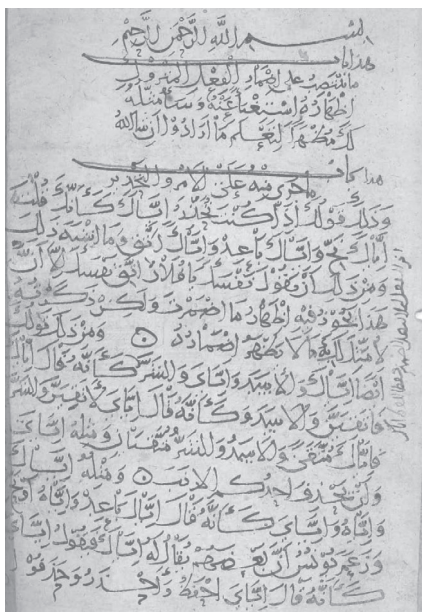 بسم الله الرحمن الرحيم
هذا باب
ما ينتصب على اضمار الفعل المتروك
اظهاره استغناء عنه وسامثله
لك مظهرا لتعلم ما ارادوا ان شا الله
هذا باب
ما جرى منه على الامر والتحذير
وذلك قولك اذا كنت تحذر اياك كانك قلت
اياك نح واياك باعد واياك اتق وما اشبه ذلك
ومن ذلك ان تقول نفسك يا فلان اي اتق نفسك الا ان
هذا لا يجوز فيه اظهار ما اضمرت ولكن ذكرته
لامثل لك به ما لا يظهر اضماره ومن ذلك قولك
ايضا اياك والاسد واياي والشر كانه قال اياك
فاتقين والاسد وكانه قال اياي لاتقين والشر
فاياك متقى والاسد والشر متقيان ومثله اياي
وان يحذف احدكم الارنب ومثله اياك
واياه واياي كانه قال اياك باعد واياه او نح
وزعم يونس ان بعضهم يقال له اياك فيقول اياي
كانه قال اياي احفظ واحذر وحذفوا